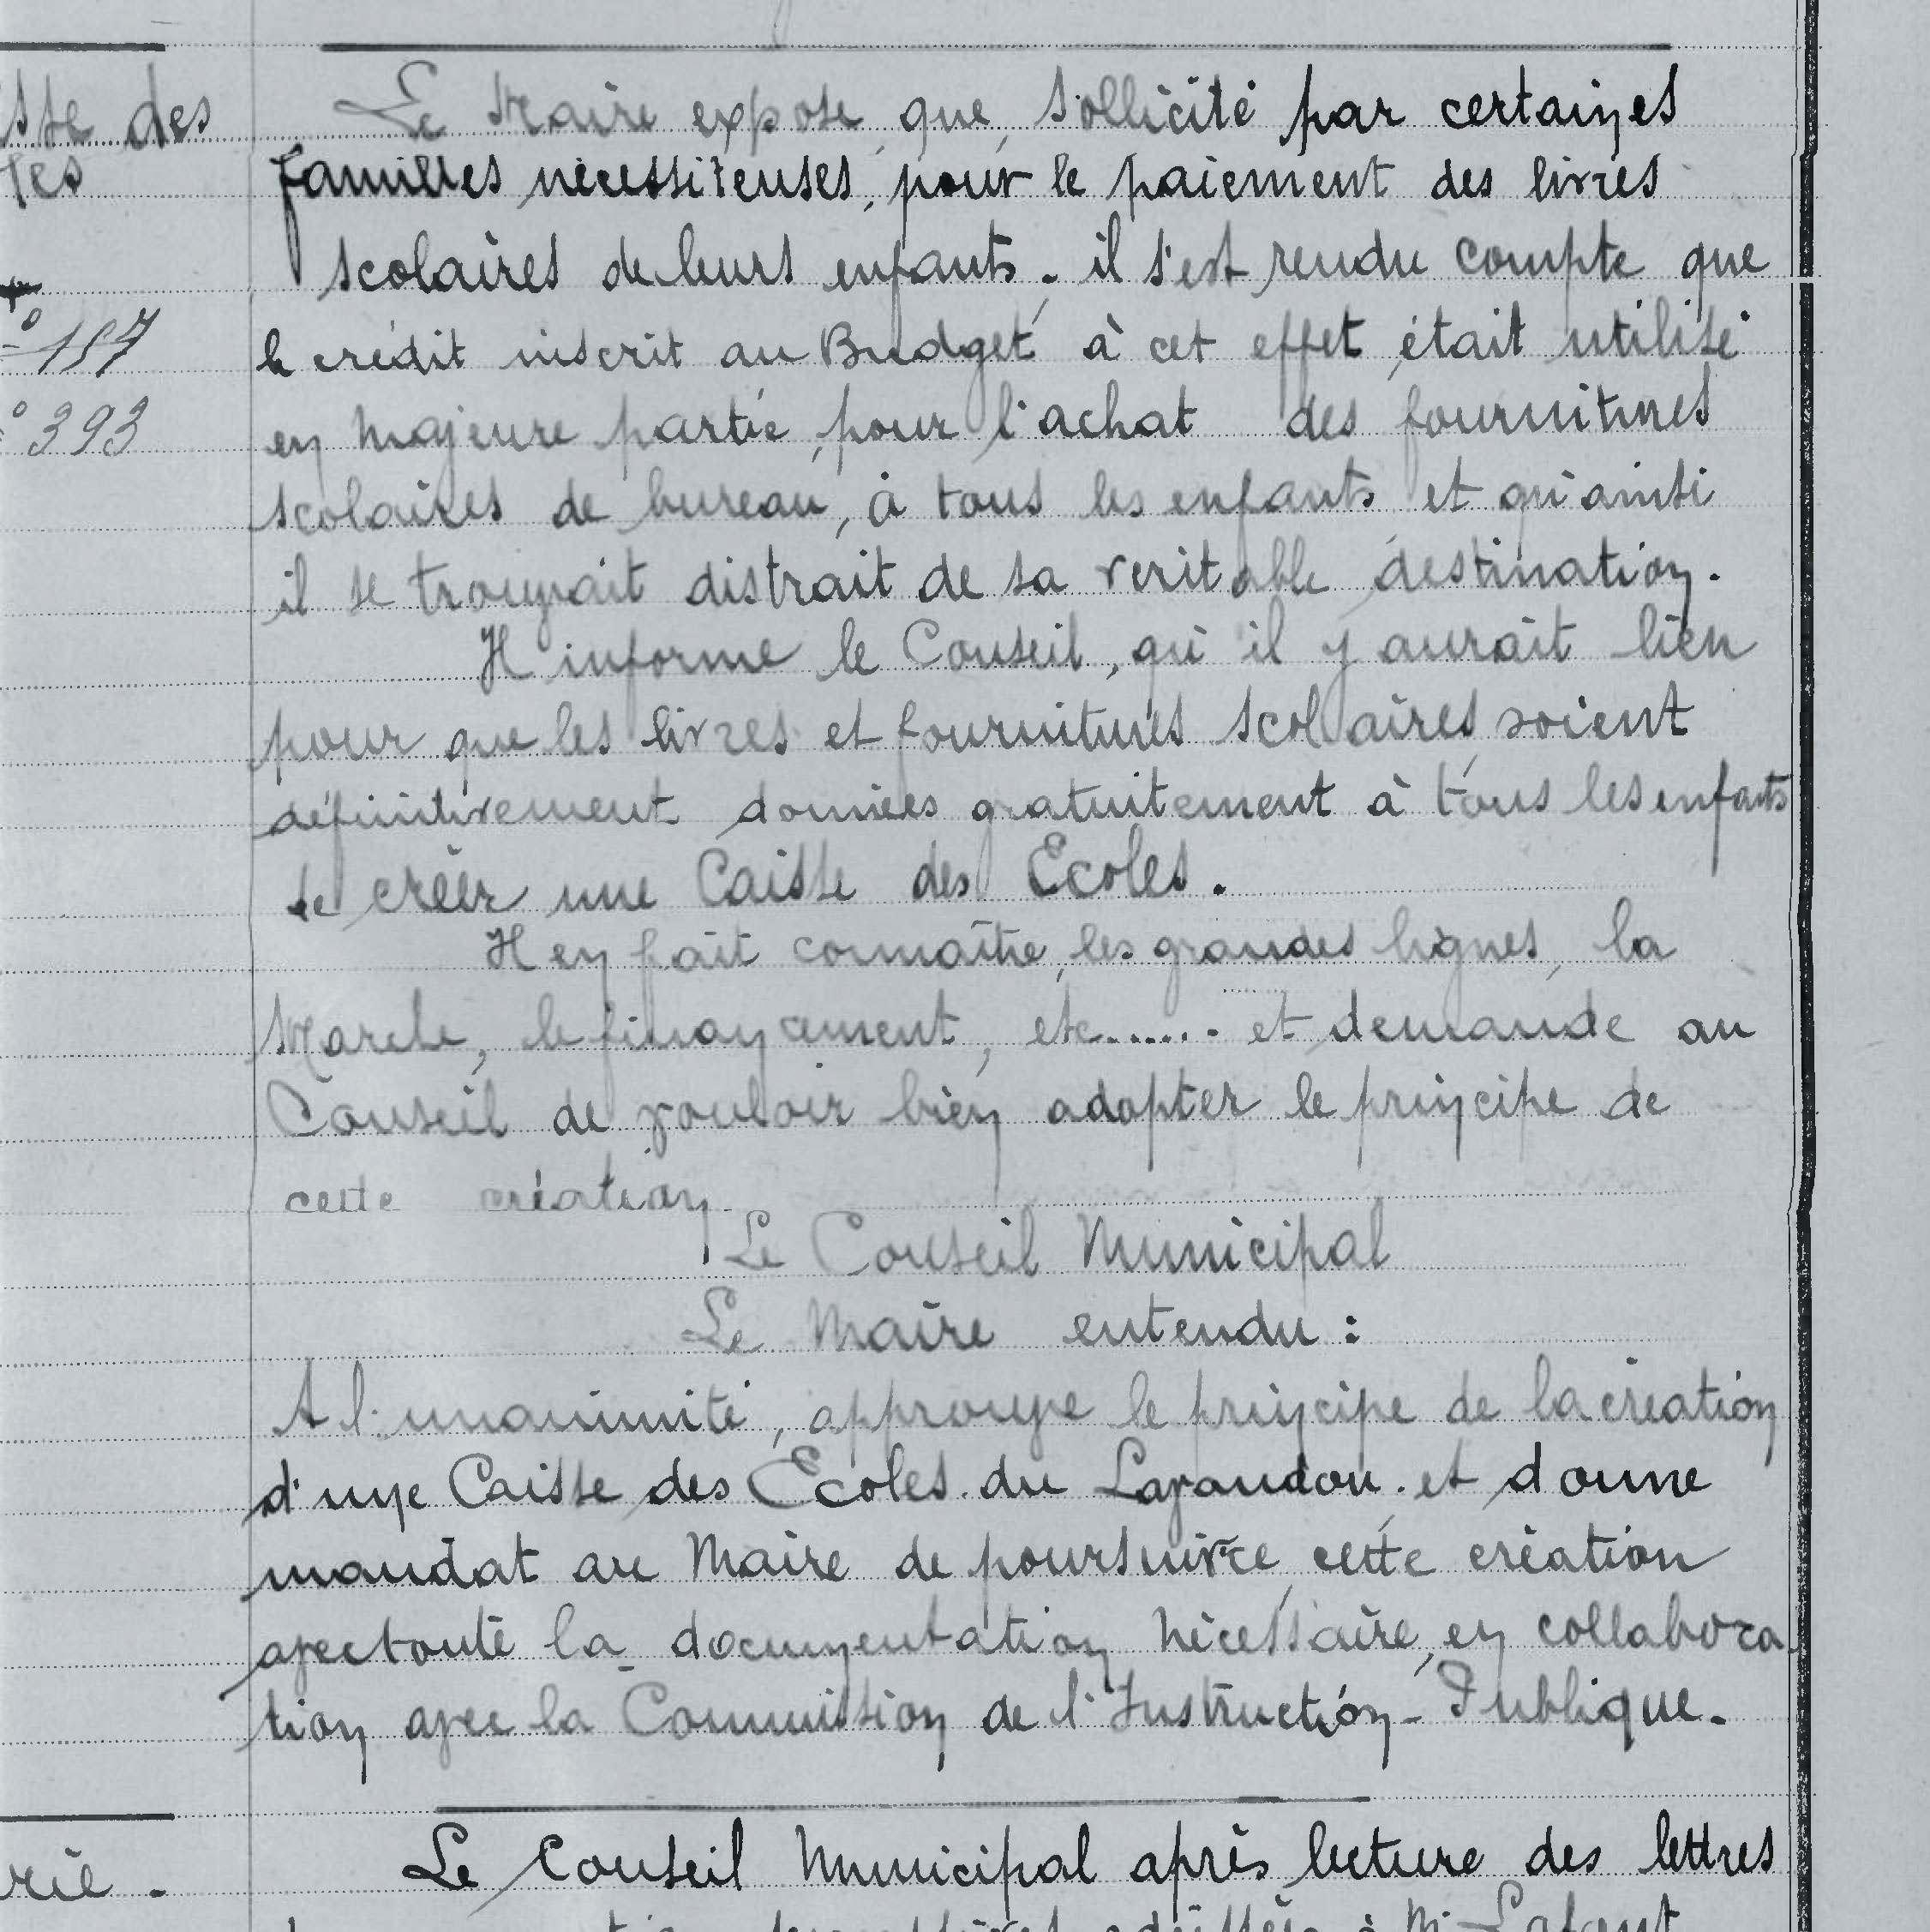 des
Le Maire expose que, sollicité par certaines
familles nécessiteuses, pour le paiement des livres
scolaires de leurs enfants, il s'est rendu compte que
187
le crédit inscrit au Budget à cet effet, était utilisé
393
en majeure partie, pour l'achat des fournitures
scolaires de bureau, à tous les enfants et qu'ainsi
il se trouvait distrait de sa veritable destination.
Il informe le Conseil, qu'il y aurait lieu
pour que les livres et fournitures scolaires soient
définitivement données gratuitement à tous les enfants
de créer une Caisse des Ecoles.
Il en fait connaître, les grandes lignes, la
Marche, le financement, etc...... et demande au
Conseil de vouloir bien adopter le principe de
cette création.
Le Conseil Municipal
Le Maire entendu :
A l'unanimité, approuve le principe de la création
d'une Caisse des Ecoles du Lavandou. et donne
mandat au Maire de poursuivre, cette création
avec toute la documentation nécessaire, en collabora
tion avec la Commission de l'Instruction-Publique.
Le Conseil Municipal après lecture des lettres
à M. Lafont